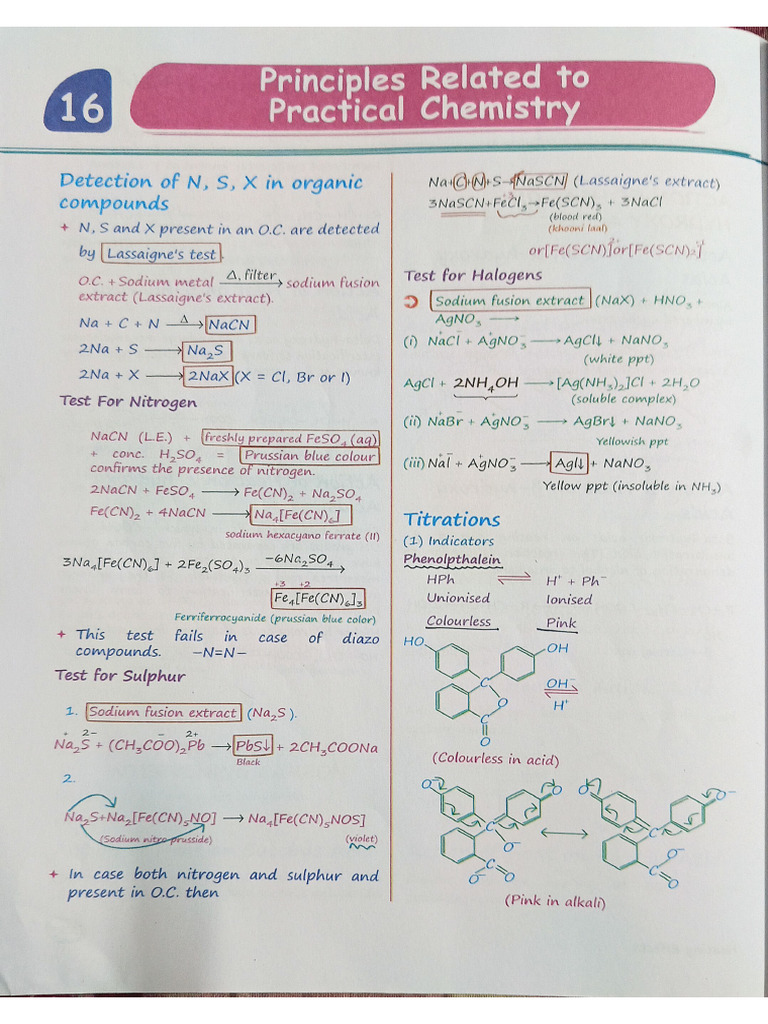 16
Principles Related to
Practical Chemistry
Detection of N, S, X in organic
compounds
+ N, S and X present in an O.C. are detected
by Lassaigne's test.
O.C. + Sodium metal —Δ, filter→ sodium fusion
extract (Lassaigne's extract).
Na + C + N —Δ→ NaCN
2Na + S ⟶ Na₂S
2Na + X ⟶ 2NaX (X = Cl, Br or I)
Test For Nitrogen
NaCN (L.E.) + freshly prepared FeSO₄ (aq)
+ conc. H₂SO₄ = Prussian blue colour
confirms the presence of nitrogen.
2NaCN + FeSO₄ ⟶ Fe(CN)₂ + Na₂SO₄
Fe(CN)₂ + 4NaCN ⟶ Na₄[Fe(CN)₆]
sodium hexacyano ferrate (II)
3Na₄[Fe(CN)₆] + 2Fe₂(SO₄)₃ —−6Na₂SO₄→
+3 +2
Fe₄[Fe(CN)₆]₃
Ferriferrocyanide (prussian blue color)
+ This test fails in case of diazo
compounds. –N=N–
Test for Sulphur
1. Sodium fusion extract (Na₂S ).
+ 2− − 2+
Na₂S + (CH₃COO)₂Pb → PbS↓ + 2CH₃COONa
Black
2.
Na₂S+Na₂[Fe(CN)₅NO] ⟶ Na₄[Fe(CN)₅NOS]
(Sodium nitro prusside) (violet)
+ In case both nitrogen and sulphur and
present in O.C. then
Na+C+N+S→NaSCN (Lassaigne's extract)
3NaSCN+FeCl₃→Fe(SCN)₃ + 3NaCl
(blood red)
(khooni laal)
or[Fe(SCN)]²⁺or[Fe(SCN)₂]⁺
Test for Halogens
Sodium fusion extract (NaX) + HNO₃ +
AgNO₃ ⟶
(i) Na⁺Cl⁻ + Ag⁺NO₃⁻ ⟶ AgCl↓ + NaNO₃
(white ppt)
AgCl + 2NH₄OH ⟶ [Ag(NH₃)₂]Cl + 2H₂O
(soluble complex)
(ii) Na⁺Br⁻ + Ag⁺NO₃⁻ ⟶ AgBr↓ + NaNO₃
Yellowish ppt
(iii) Na⁺I⁻ + Ag⁺NO₃⁻ ⟶ AgI↓ + NaNO₃
Yellow ppt (insoluble in NH₃)
Titrations
(1) Indicators
Phenolpthalein
HPh ⇌ H⁺ + Ph⁻
Unionised Ionised
Colourless Pink
HO OH
C
O
C
O
OH⁻
H⁺
(Colourless in acid)
O⁻ O
C
O⁻
C
O⁻ O
O O⁻
C
O⁻
C
O
(Pink in alkali)